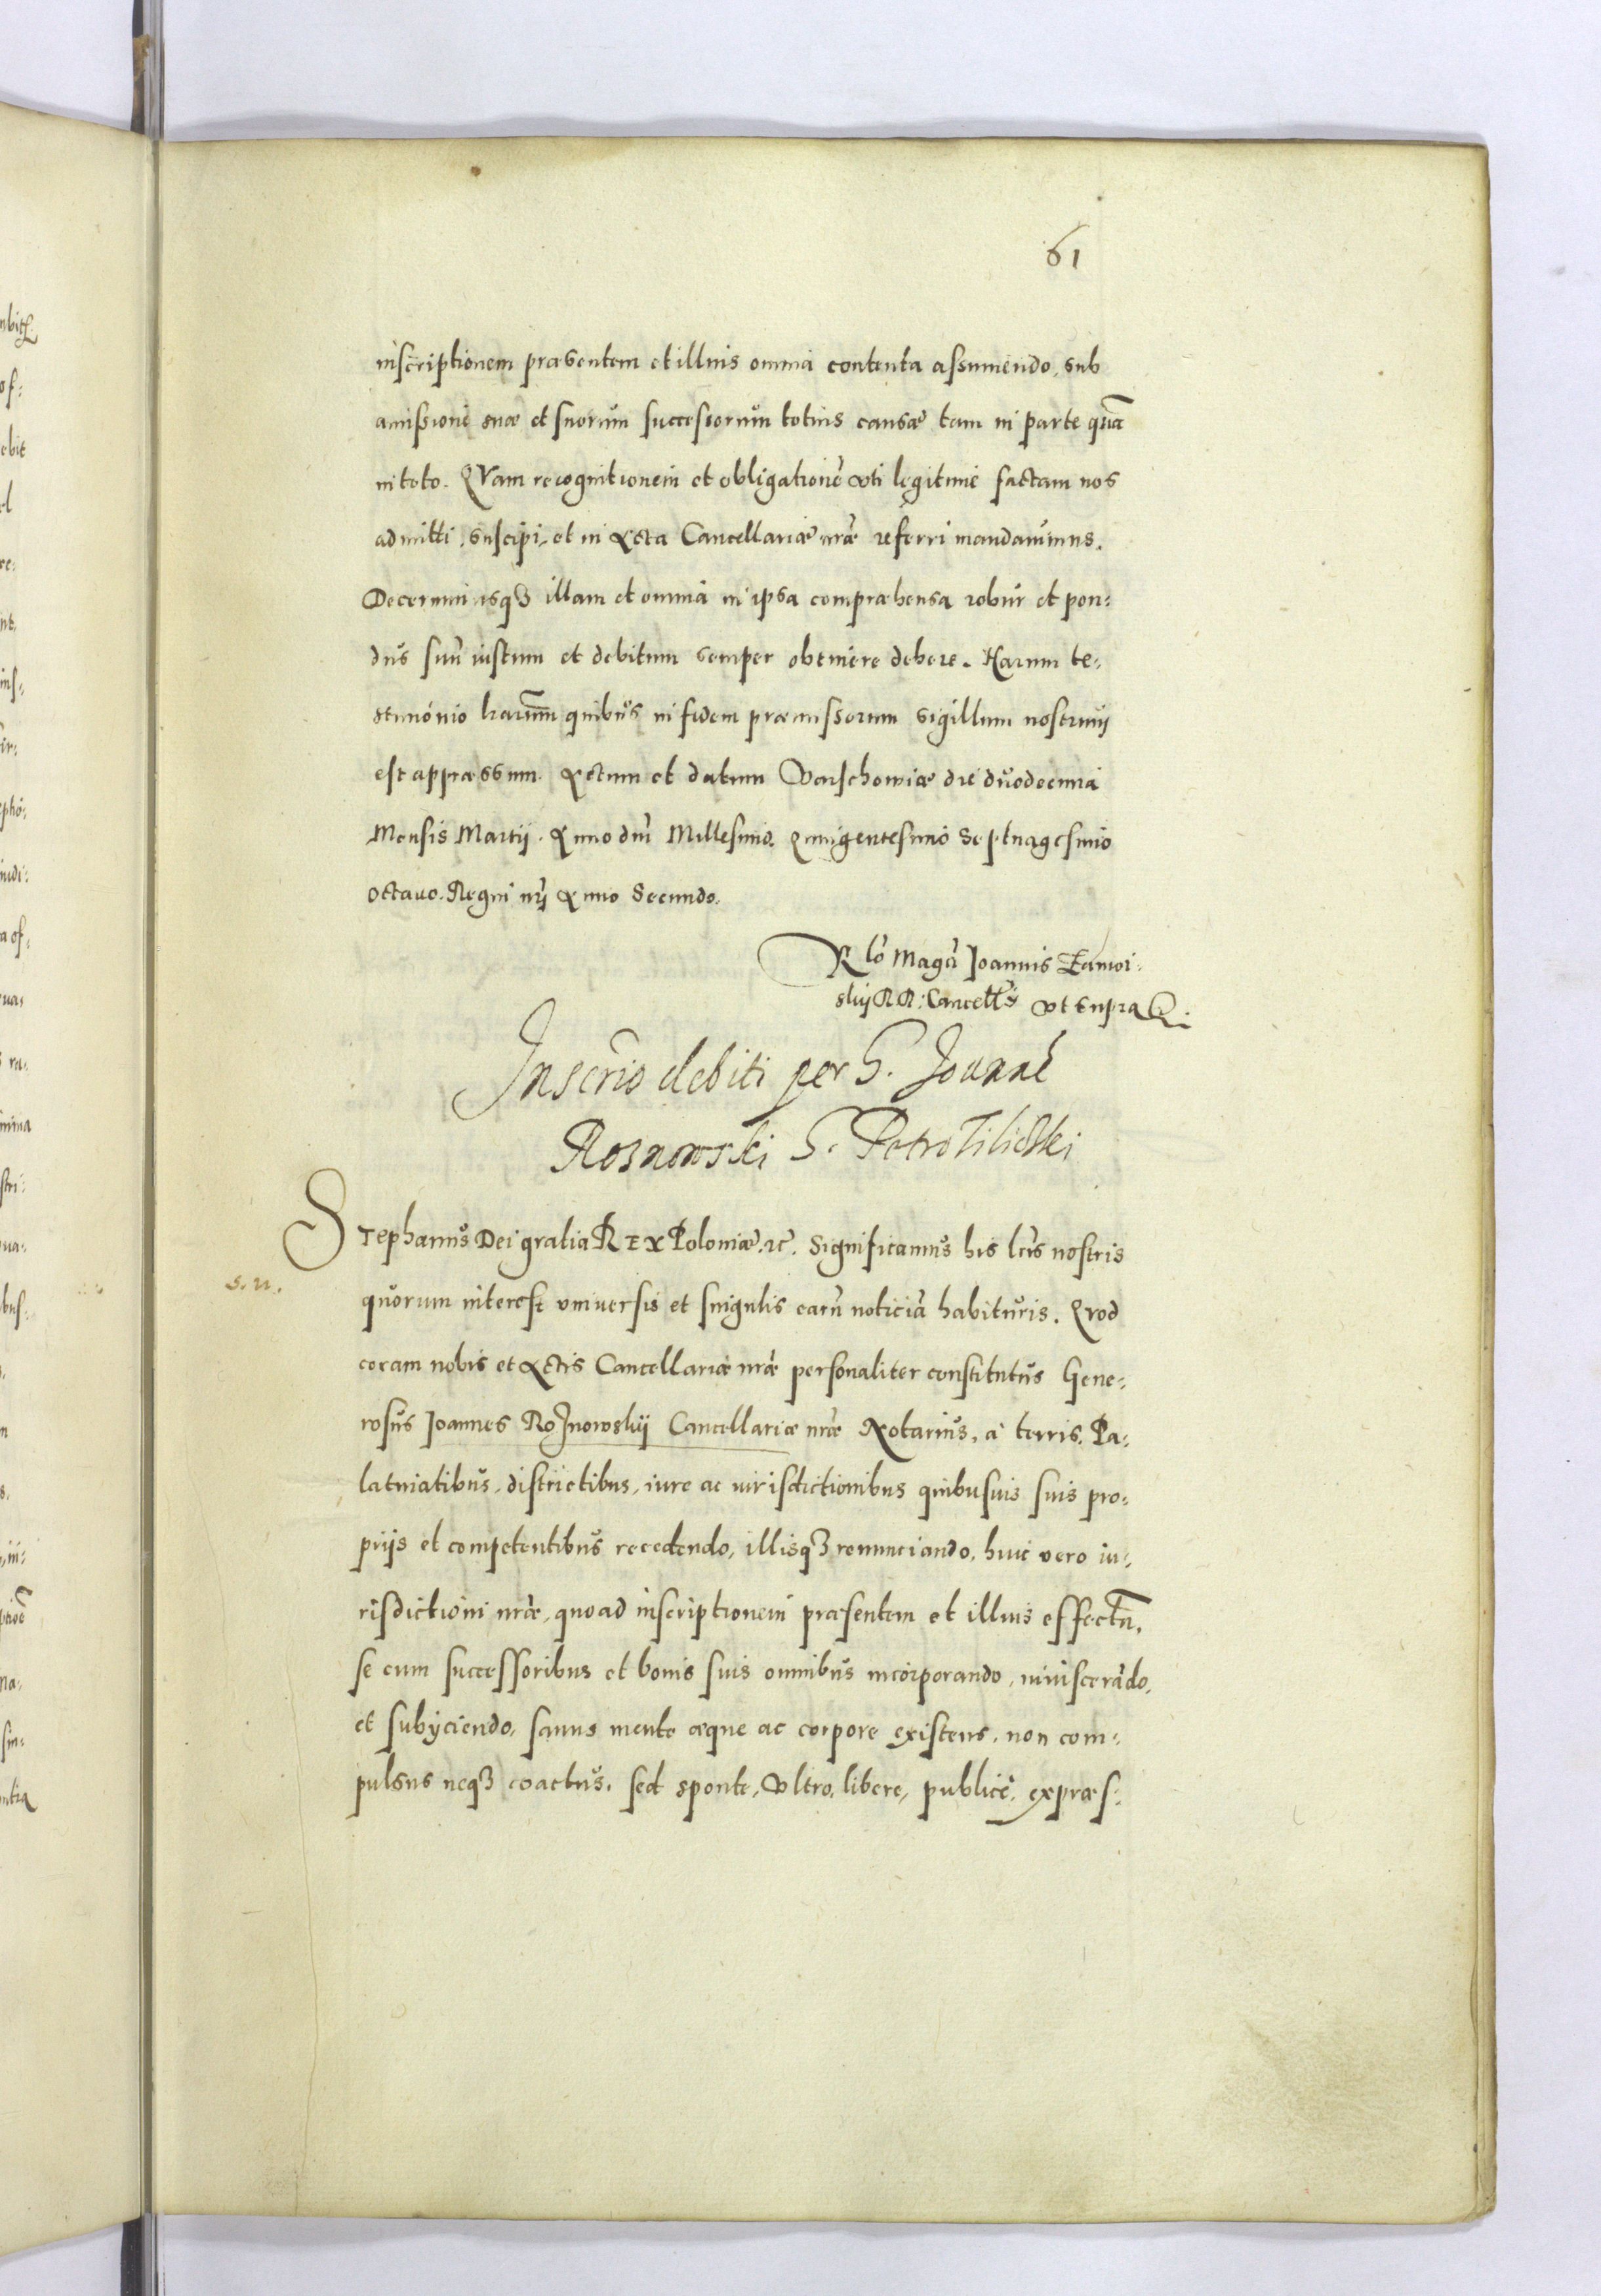 61
inscriptionem praesentem et illius omnia contenta assumendo, sub
amissione suae et suorum successorum totius causae tam in parte quã
in toto. QVam recognitionem et obligationẽ vti legitime factam nos
admitti, suscipi, et in Acta Cancellariae nrãe referri mandavimus.
Decernimusq3 illam et omnia in ipsa compraehensa robur et pon:
dus suũ iustum et debitum semper obtinere debere. Harum te:
stimonio lrarum quibus in fidem praemissorum sigillum nostrum
est appraessum. Actum et datum Varschowiae die duodecima
Mensis Martij. Anno dñi Millesimo. Quingentesimo Septuagesimo
octavo. Regni nrĩ Anno Secundo.
Rlõ Magci Joannis Zamoi:
skij R R: Cancellrs vt supra
Inscrio debiti per G. Joannẽ
Roznowski G. Petro Tiliczki
Stephanus Dei gratia REX Poloniae. etc. Significamus his lrĩs nostris
s. n.
quorum interest vniuersis et singulis earũ noticiã habituris. Qvod
coram nobis et Actis Cancellariae nrãe personaliter constitutus Gene:
rosus Joannes Roznowskij Cancellariae nrãe Notarius, à terris, Pa:
latinatibus, districtibus, iure ac iurisdictionibus quibusuis suis pro:
prijs et competentibus recedendo, illisq3 renunciando, huic vero iu:
risdictioni nrãe, quoad inscriptionem praesentem et illius effectũ,
se cum successoribus et bonis suis omnibus incorporando, inuiscerãdo,
et subijciendo, sanus mente aeque ac corpore existens, non com:
pulsus neq3 coactus, sed sponte, vltro, libere, publicè, expraes: